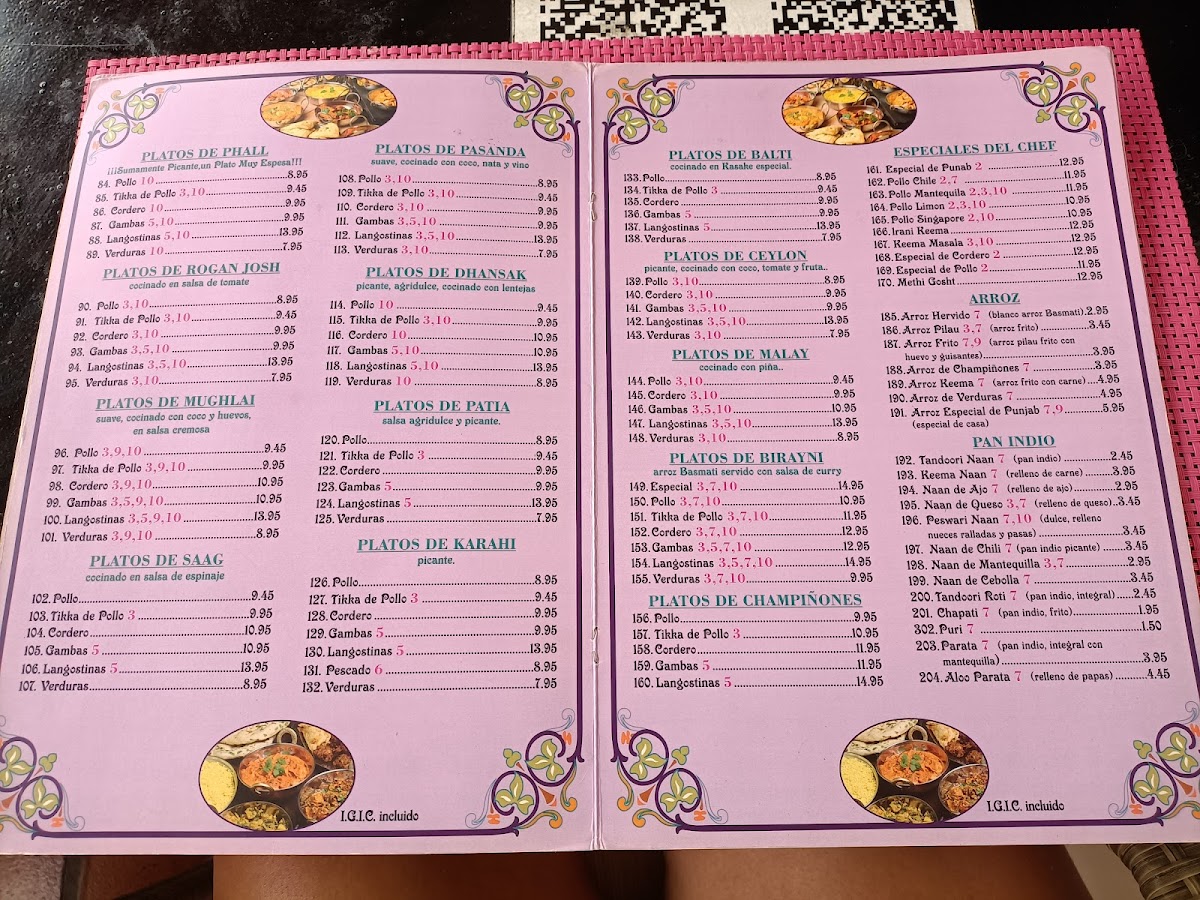 PLATOS DE PHALL
¡¡¡Sumamente Picante,un Plato Muy Espesa!!!
84. Pollo 10 8.95
85. Tikka de Pollo 3,10 9.45
86. Cordero 10 9.95
87. Gambas 5,10 9.95
88. Langostinas 5,10 13.95
89. Verduras 10 7.95
PLATOS DE ROGAN JOSH
cocinado en salsa de tomate
90. Pollo 3,10 8.95
91. Tikka de Pollo 3,10 9.45
92. Cordero 3,10 9.95
93. Gambas 3,5,10 9.95
94. Langostinas 3,5,10 13.95
95. Verduras 3,10 7.95
PLATOS DE MUGHLAI
suave, cocinado con coco y huevos,
en salsa cremosa
96. Pollo 3,9,10 9.45
97. Tikka de Pollo 3,9,10 9.95
98. Cordero 3,9,10 10.95
99. Gambas 3,5,9,10 10.95
100. Langostinas 3,5,9,10 13.95
101. Verduras 3,9,10 8.95
PLATOS DE SAAG
cocinado en salsa de espinaje
102. Pollo 9.45
103. Tikka de Pollo 3 9.95
104. Cordero 10.95
105. Gambas 5 10.95
106. Langostinas 5 13.95
107. Verduras 8.95
PLATOS DE PASANDA
suave, cocinado con coco, nata y vino
108. Pollo 3,10 8.95
109. Tikka de Pollo 3,10 9.45
110. Cordero 3,10 9.95
111. Gambas 3,5,10 9.95
112. Langostinas 3,5,10 13.95
113. Verduras 3,10 7.95
PLATOS DE DHANSAK
picante, agridulce, cocinado con lentejas
114. Pollo 10 9.45
115. Tikka de Pollo 3,10 9.95
116. Cordero 10 10.95
117. Gambas 5,10 10.95
118. Langostinas 5,10 13.95
119. Verduras 10 8.95
PLATOS DE PATIA
salsa agridulce y picante.
120. Pollo 8.95
121. Tikka de Pollo 3 9.45
122. Cordero 9.95
123. Gambas 5 9.95
124. Langostinas 5 13.95
125. Verduras 7.95
PLATOS DE KARAHI
picante.
126. Pollo 8.95
127. Tikka de Pollo 3 9.45
128. Cordero 9.95
129. Gambas 5 9.95
130. Langostinas 5 13.95
131. Pescado 6 8.95
132. Verduras 7.95
I.G.I.C. incluido
PLATOS DE BALTI
cocinado en Kasahe especial.
133. Pollo 8.95
134. Tikka de Pollo 3 9.45
135. Cordero 9.95
136. Gambas 5 9.95
137. Langostinas 5 13.95
138. Verduras 7.95
PLATOS DE CEYLON
picante, cocinado con coco, tomate y fruta..
139. Pollo 3,10 8.95
140. Cordero 3,10 9.95
141. Gambas 3,5,10 9.95
142. Langostinas 3,5,10 13.95
143. Verduras 3,10 7.95
PLATOS DE MALAY
cocinado con piña..
144. Pollo 3,10 9.45
145. Cordero 3,10 9.95
146. Gambas 3,5,10 10.95
147. Langostinas 3,5,10 13.95
148. Verduras 3,10 8.95
PLATOS DE BIRAYNI
arroz Basmati servido con salsa de curry
149. Especial 3,7,10 14.95
150. Pollo 3,7,10 10.95
151. Tikka de Pollo 3,7,10 11.95
152. Cordero 3,7,10 12.95
153. Gambas 3,5,7,10 12.95
154. Langostinas 3,5,7,10 14.95
155. Verduras 3,7,10 9.95
PLATOS DE CHAMPIÑONES
156. Pollo 9.95
157. Tikka de Pollo 3 10.95
158. Cordero 11.95
159. Gambas 5 11.95
160. Langostinas 5 14.95
ESPECIALES DEL CHEF
161. Especial de Punab 2 12.95
162. Pollo Chile 2,7 11.95
163. Pollo Mantequila 2,3,10 11.95
164. Pollo Limon 2,3,10 10.95
165. Pollo Singapore 2,10 10.95
166. Irani Keema 12.95
167. Keema Masala 3,10 12.95
168. Especial de Cordero 2 12.95
169. Especial de Pollo 2 11.95
170. Methi Gosht 12.95
ARROZ
185. Arroz Hervido 7 (blanco arroz Basmati).2.95
186. Arroz Pilau 3,7 (arroz frito) 3.45
187. Arroz Frito 7,9 (arroz pilau frito con
huevo y guisantes) 3.95
188. Arroz de Champiñones 7 3.95
189. Arroz Keema 7 (arroz frito con carne) 4.95
190. Arroz de Verduras 7 4.95
191. Arroz Especial de Punjab 7,9 5.95
(especial de casa)
PAN INDIO
192. Tandoori Naan 7 (pan indio) 2.45
193. Keema Naan 7 (relleno de carne) 3.95
194. Naan de Ajo 7 (relleno de ajo) 2.95
195. Naan de Queso 3,7 (relleno de queso)..3.45
196. Peswari Naan 7,10 (dulce, relleno
nueces ralladas y pasas) 3.45
197. Naan de Chili 7 (pan indio picante) 3.45
198. Naan de Mantequilla 3,7 2.95
199. Naan de Cebolla 7 3.45
200. Tandoori Roti 7 (pan indio, integral) 2.45
201. Chapati 7 (pan indio, frito) 1.95
302. Puri 7 1.50
203. Parata 7 (pan indio, integral con
mantequilla) 3.95
204. Aloo Parata 7 (relleno de papas) 4.45
I.G.I.C. incluido